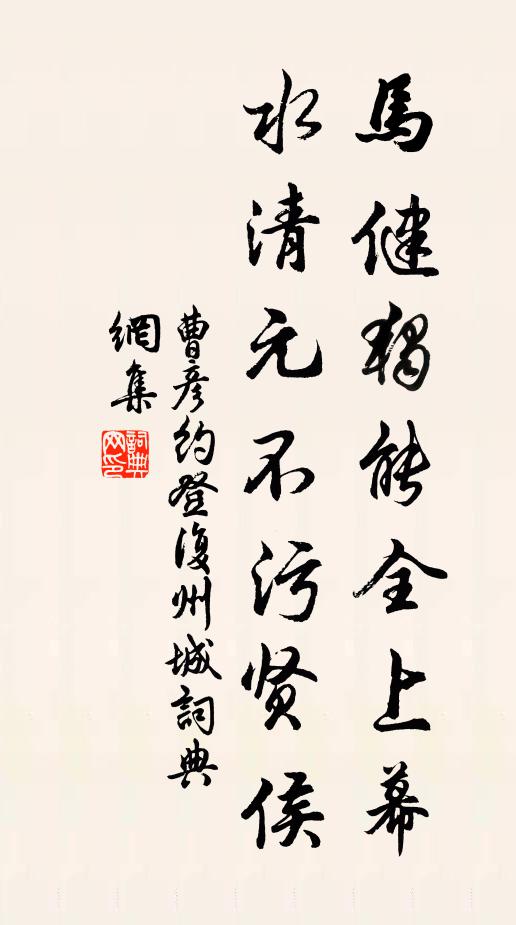 馬健獨能全上幕
水清元不污賢侯
曹彥約登復州城詞典
網集
詞典網印